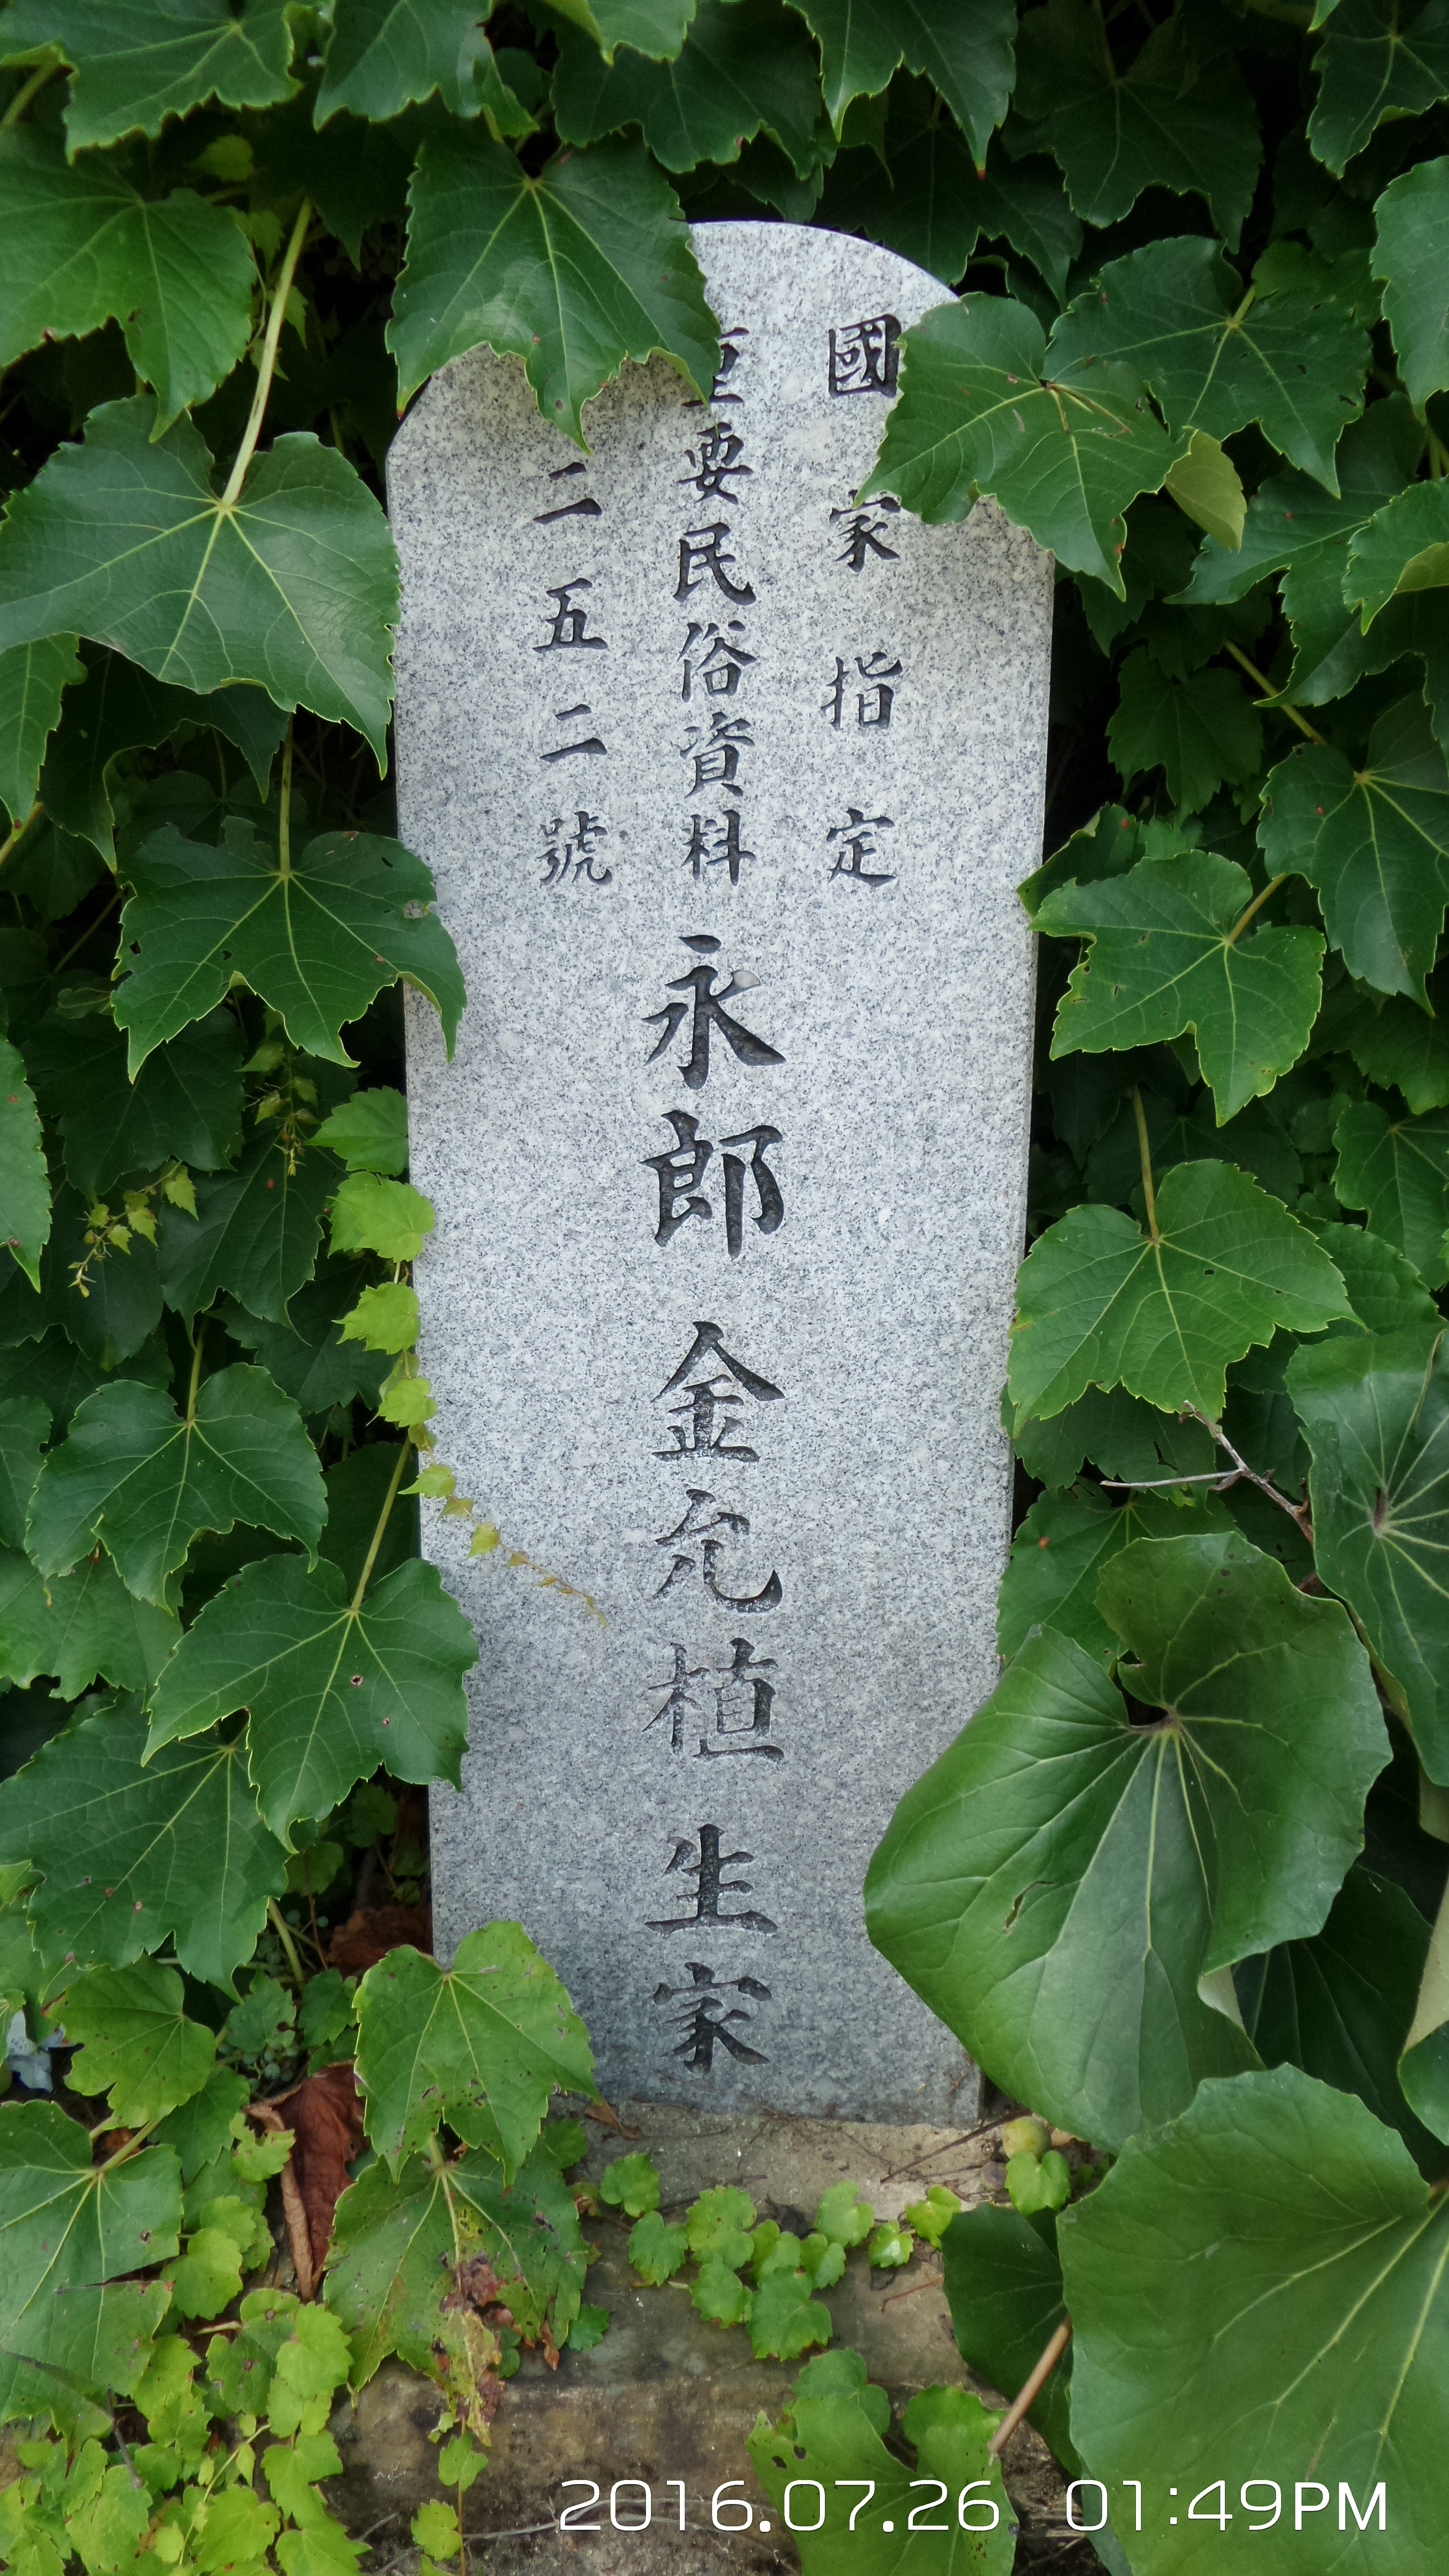 國家指定
重要民俗資料
二五二號
永郎 金允植 生家
2016.07.26 01:49PM